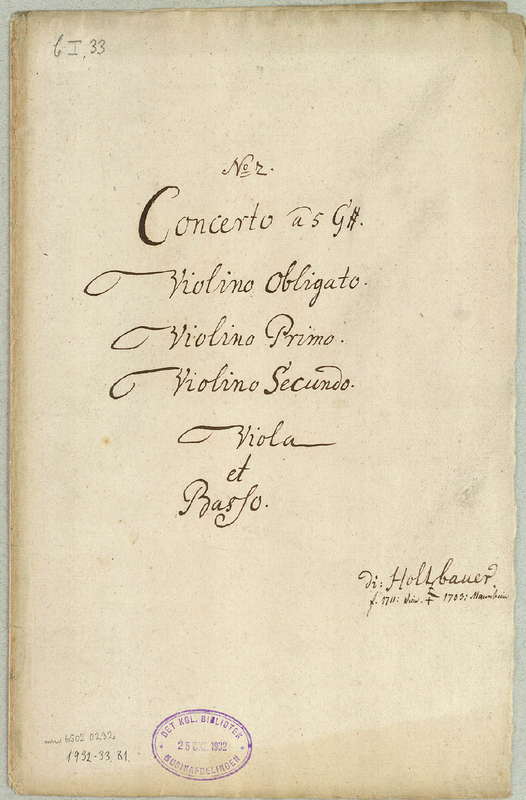 6 I, 33
No 2.
Concerto à 5 G#.
Violino Obligato.
Violino Primo.
Violino Secundo.
Viola
et
Basso.
di: Holtzbauer.
f. 1711: Wien. † 1783: Mannheim
6502 0232
1932-33, 81.
DET KGL. BIBLIOTEK
1932
MUSIKAFDELINGEN